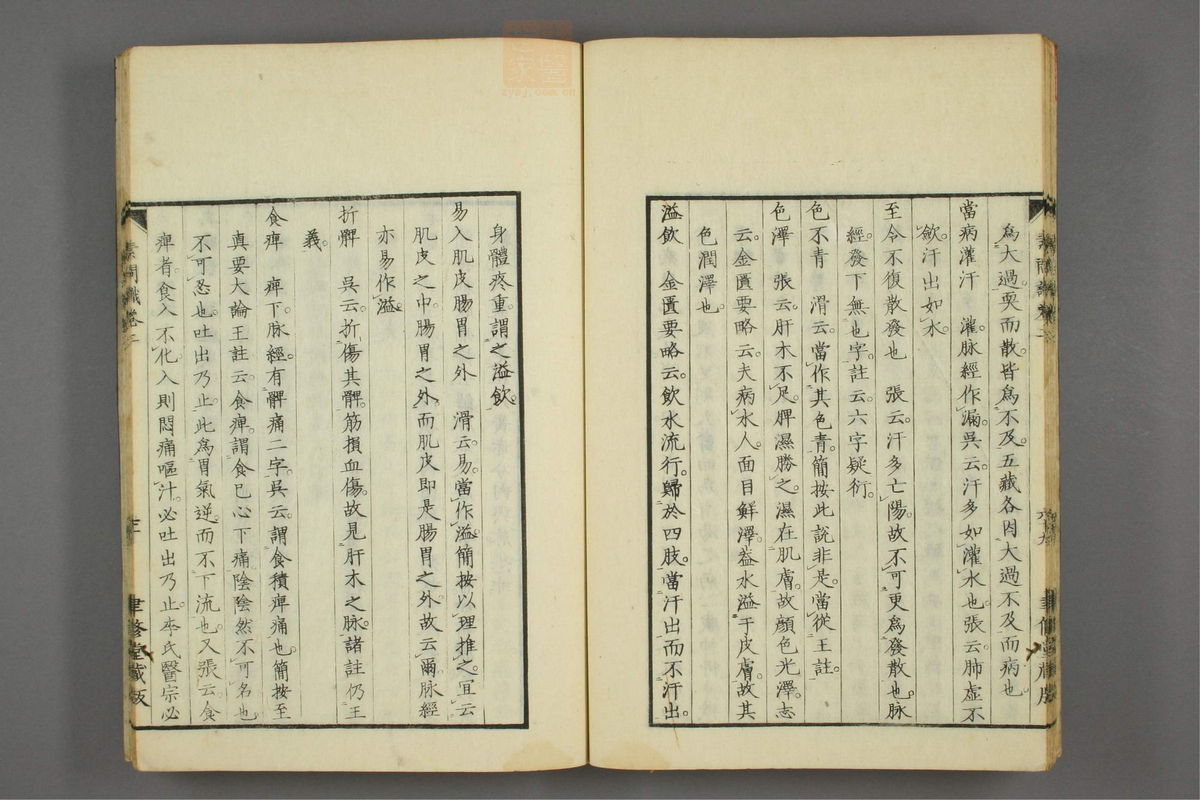 為大過耎而散。皆為不及。五藏各因大過不及而病也
當病灌汗　灌。脉經作漏。吳云。汗多如灌水也。張云。肺虛不
斂。汗出如水。
至令不復散發也　張云。汗多亡陽。故不可更為發散也。脉
經。發下無也字。註云。六字疑衍。
色不青　滑云。當作其色青。簡按此說非是。當從王註。
色澤　張云。肝木不足。脾濕勝之。濕在肌膚。故顏色光澤。志
云。金匱要略云。夫病水人。面目鮮澤。益水溢于皮膚。故其
色潤澤也。
溢飲　金匱要略云。飲水流行。歸於四肢。當汗出而不汗出。
身體疼重。謂之溢飲。
易入肌皮腸胃之外　滑云。易。當作溢。簡按以理推之。宜云
肌皮之中。腸胃之外。而肌皮即是腸胃之外。故云爾。脉經
亦易作溢。
折髀　吳云。折傷其髀。筋損血傷。故見肝木之脉。諸註仍王
義。
食痺　痺下。脉經有髀痛二字。吳云。謂食積痺痛也。簡按至
真要大論王註云。食痺。謂食已心下痛陰陰然。不可名也
不可忍也。吐出乃止。此為胃氣逆而不下流也。又張云。食
痺者。食入不化。入則悶痛嘔汁。必吐出乃止。李氏醫宗必
素問識卷二
聿修堂藏版